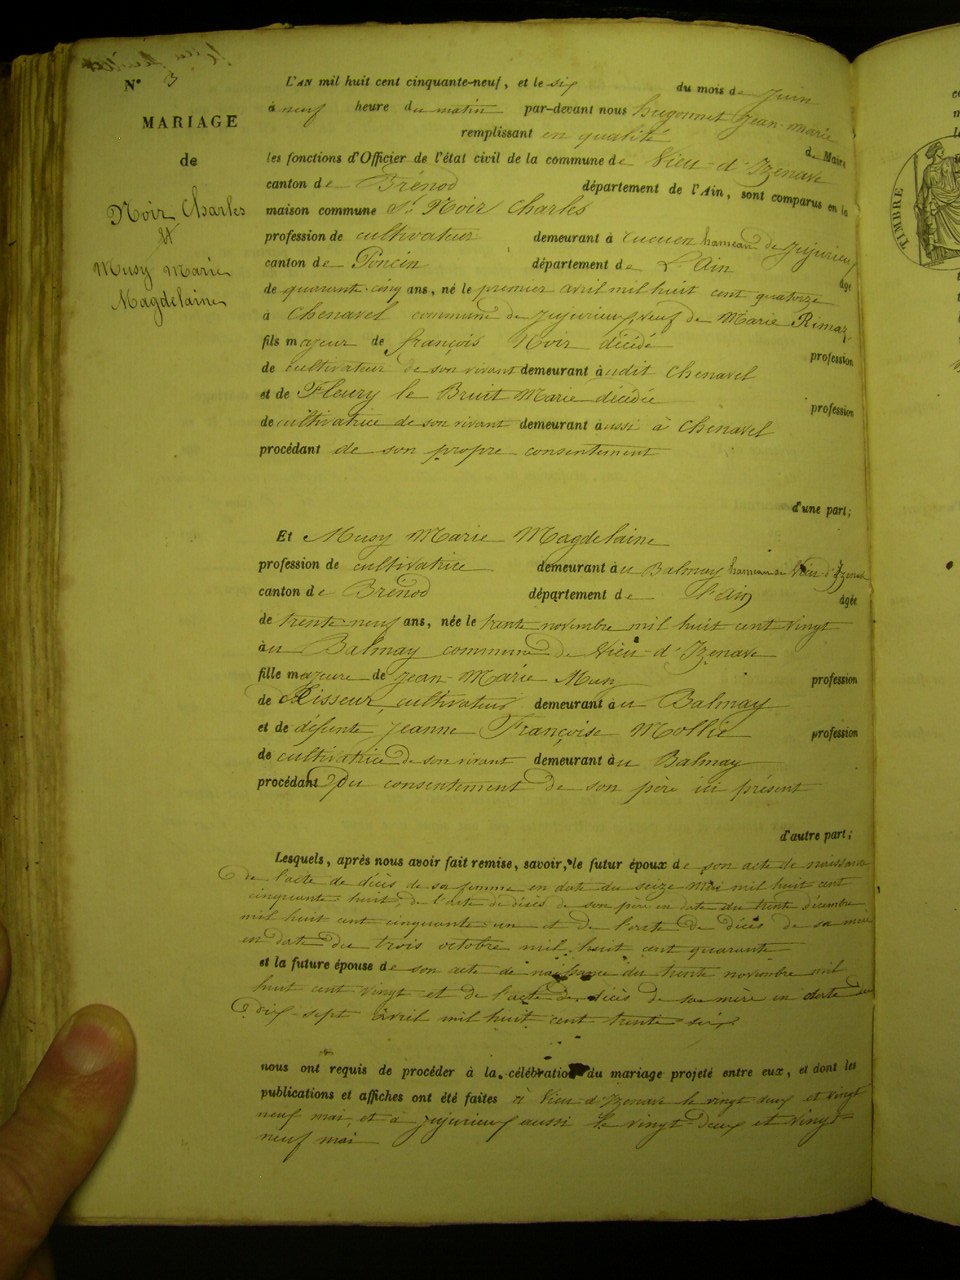 N° 3
MARIAGE
de
Noir Charles
et
Musy Marie
Magdelaine
L'AN mil huit cent cinquante-neuf, et le six du mois de Juin
à neuf heure du matin par-devant nous hugonnet Jean-marie
remplissant en qualité de Maire
les fonctions d'Officier de l'état civil de la commune de Vieu-d'Izenave
canton de Brénod département de l'Ain, sont comparus en la
maison commune Sr Noir Charles
profession de cultivateur demeurant à Cucuen hameau de Jujurieux
canton de Poncin département de L'Ain âgé
de quarante-cinq ans, né le premier avril mil huit cent quatorze
à Chenavel commune de Jujurieux, veuf de Marie Rimaz
fils majeur de françois Noir décédé profession
de cultivateur de son vivant demeurant audit Chenavel
et de Fleury le Bruit Marie décédée profession
de cultivatrice de son vivant demeurant aussi à Chenavel
procédant de son propre consentement
d'une part;
Et Musy Marie Magdelaine
profession de cultivatrice demeurant au Balmay hameau de Vieu-d'Izenave
canton de Brénod département de L'ain âgée
de trente-neuf ans, née le trente novembre mil huit cent vingt
au Balmay commune de Vieu-d'Izenave
fille majeure de Jean-Marie Musy profession
de cultivateur demeurant au Balmay
et de défunte Jeanne Françoise Mollie profession
de cultivatrice de son vivant demeurant au Balmay
procédant du consentement de son père ici présent
d'autre part;
Lesquels, après nous avoir fait remise, savoir, le futur époux de son acte de naissance
de l'acte de décès de sa femme en date du seize Mai mil huit cent
cinquante huit, de l'acte de décès de son père en date du trente décembre
mil huit cent cinquante-un et de l'acte de décès de sa mère
en date du trois octobre mil huit cent quarante
et la future épouse de son acte de naissance du trente novembre mil
huit cent vingt et de l'acte de décès de sa mère en date du
dix-sept avril mil huit cent trente six
nous ont requis de procéder à la célébration du mariage projeté entre eux, et dont les
publications et affiches ont été faites à Vieu-d'Izenave le vingt deux et vingt
neuf mai, et à Jujurieux aussi le vingt-deux et vingt-
neuf mai
TIMBRE